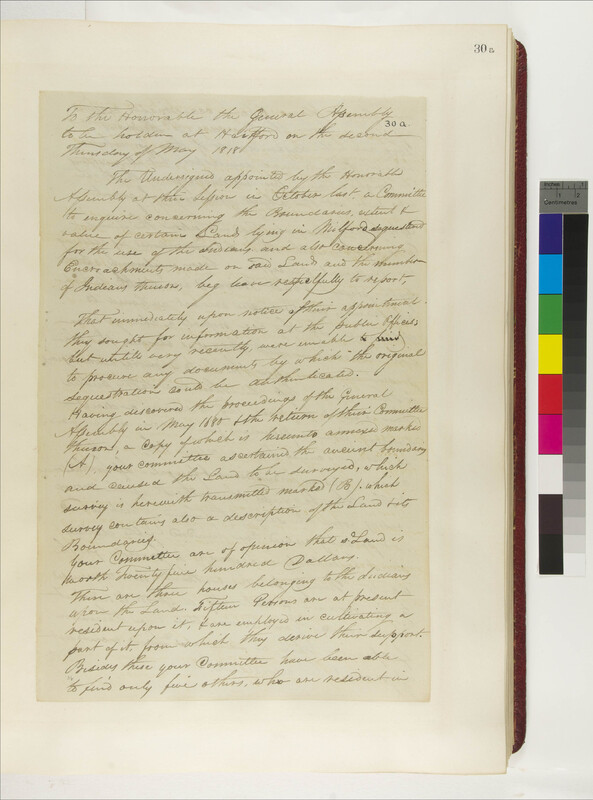 30 a
To the Honorable the General Assembly
30 a.
to be holden at Hartford on the second
Thursday of May 1818
The Undersigned appointed by the Honorable
Assembly at their Session in October last, a Committee
to enquire concerning the Boundaries, extent &
value of certain Land lying in Milford sequesterd
for the use of the Indians and also concerning
Encroachments made on said Land and the number
of Indians thereon, beg leave respectfully to report,
That immediately upon notice of their appointment
they sought for information at the public Offices
but until very recently were unable to find
to procure any documents by which the original
Sequestration could be Authenticated.
Having discovered the proceedings of the General
Assembly in May 1680 & the return of their Committee
thereon, a Copy of which is hereunto annexed marked
(A), your committee ascertained the ancient boundary
and caused the Land to be surveyed, which
survey is herewith transmitted marked (B). which
survey contains also a description of the Land & its
Boundaries.
Your Committee are of opinion that sd Land is
worth Twenty five hundred Dollars.
There are three houses belonging to the Indians
upon the Land. Fifteen Persons are at present
resident upon it, & are employd in cultivating a
part of it from which they derive their support.
Besides these your Committee have been able
to find only five others, who are resident in